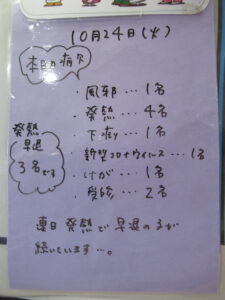 10月24日(火)
本日の病欠
・風邪…1名
・発熱…4名
・下痢…1名
・新型コロナウイルス…1名
・けが…1名
・受診…2名
発熱
早退
3名です
連日発熱で早退の子が
続いています…。